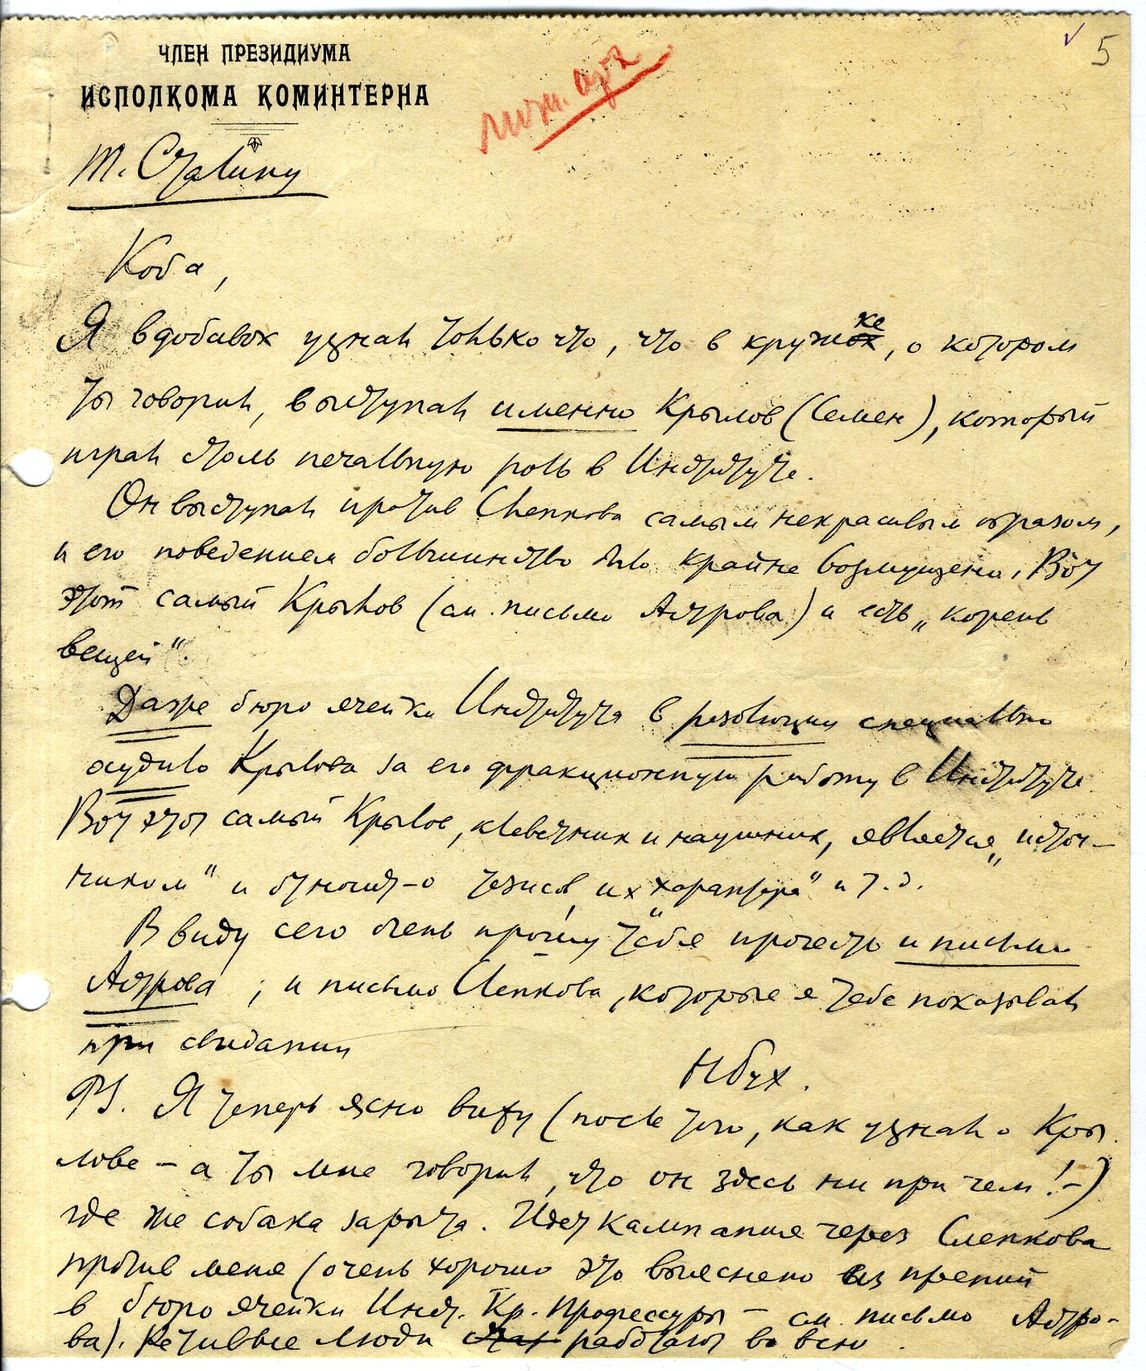 5
ЧЛЕН ПРЕЗИДИУМА
ИСПОЛКОМА КОМИНТЕРНА
т. Сталину
Коба,
Я вдобавок узнал только что, что в кружке, о котором
ты говорил, выступал именно Крылов (Семен), который
играл столь печальную роль в Институте.
Он выступал против Слепкова самым некрасивым образом,
и его поведением большинство было крайне возмущено. Вот
этот самый Крылов (см. письмо Астрова) и есть „корень
вещей“.
Даже бюро ячейки Института в резолюции специально
осудило Крылова за его фракционную работу в Институте.
Вот этот самый Крылов, клеветник и наушник, является „источ-
ником“ и относит-о тезисов, их „характера“ и т.д.
В виду сего очень прошу тебя прочесть и письмо
Астрова; и письмо Слепкова, которые я тебе показывал
при свидании
Н Бух.
PS. Я теперь ясно вижу (после того, как узнал о Кры
лове – а ты мне говорил, что он здесь ни при чем! –)
где же собака зарыта. Идет кампания через Слепкова
против меня (очень хорошо это выяснено из прений
в бюро ячейки Инст. Кр. Профессуры – см. письмо Астро-
ва). Ретивые люди работают во всю.